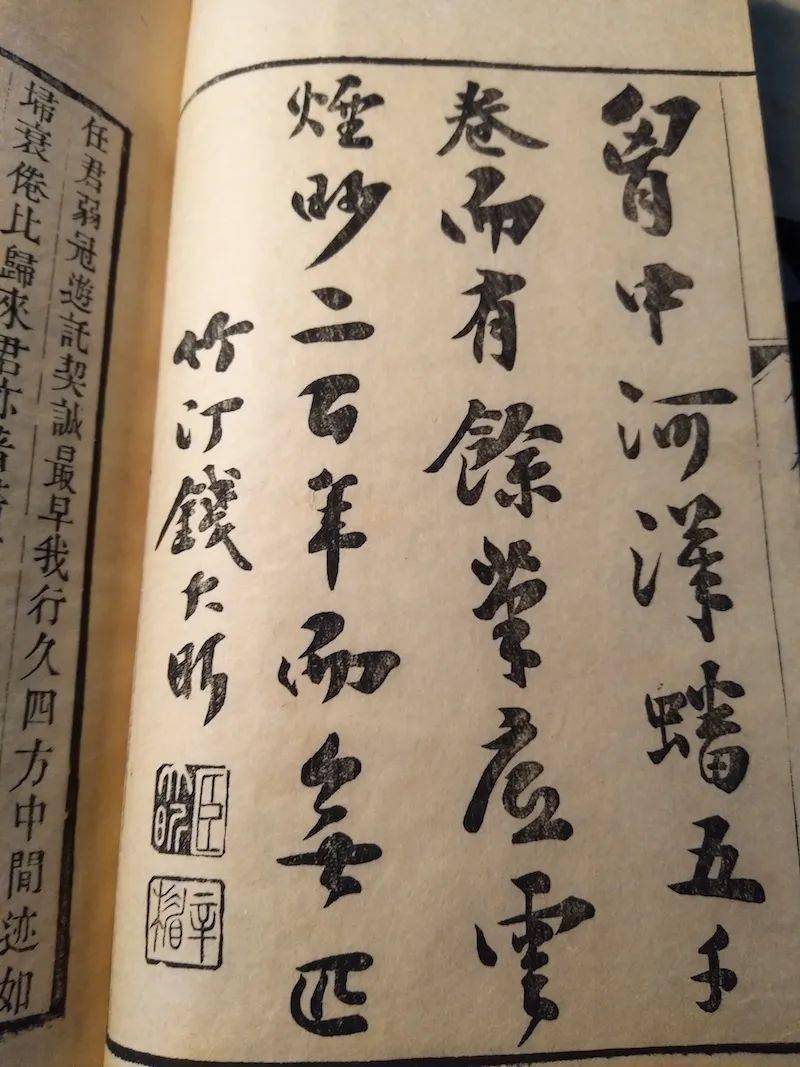 胷中河漢蟠五千
卷而有餘筆底雲
煙眇二百年而無匹
竹汀錢大昕
臣大昕
辛楣
任君弱冠遊託契誠最早我行久四方中閒迹如
埽衰倦比歸來君亦著